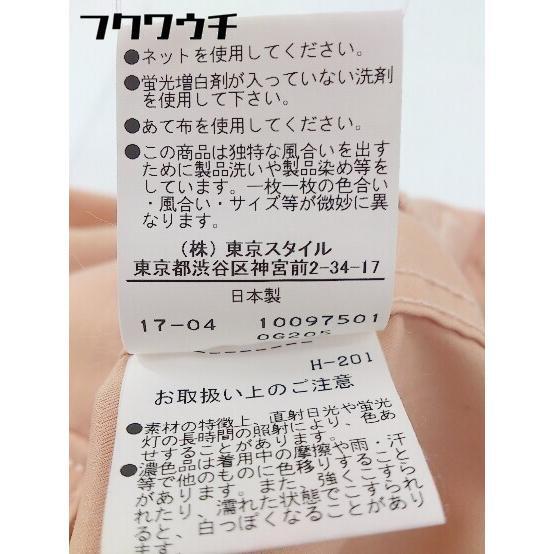 フクワウチ
●ネットを使用してください。
●蛍光増白剤が入っていない洗剤
を使用して下さい。
●あて布を使用してください。
●この商品は独特な風合いを出す
ために製品洗いや製品染め等を
しています。一枚一枚の色合い
・風合い・サイズ等が微妙に異
なります。
(株)東京スタイル
東京都渋谷区神宮前2-34-17
日本製
17-04 10097501
0G205
H-201
お取扱い上のご注意
●素材の特徴上、直射日光や蛍光
灯の長時間の照射により、色あ
せすることがあります。
●濃色品は着用中の摩擦や雨・汗
等で他のものに色移りすること
があります。また、強くこすられ
れたり、濡れた状態でこすられ
ると、白っぽくなることがあり
ます。